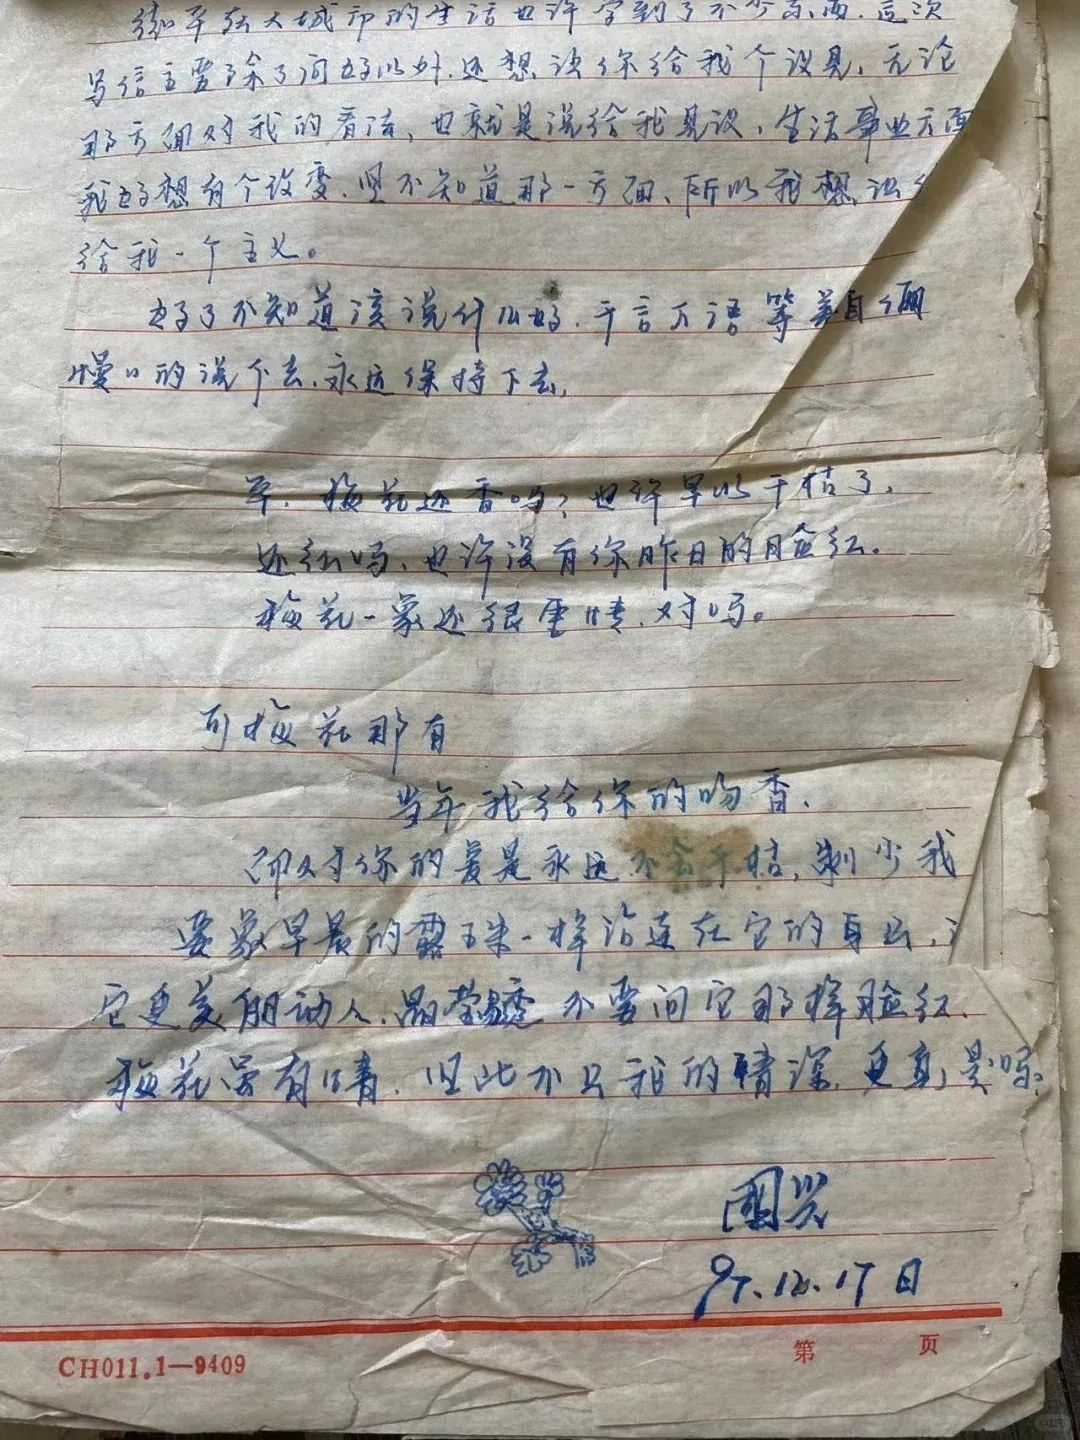 你平在大城市的生活也许学到了不少东西.这次
写信主要除了问好以外.还想谈你给我个议见,无论
那方面对我的看法,也就是说给我见议,生活事业方面
我好想有个改变.但不知道那一方面、所以我想让
给我一个主义。
好了不知道该说什么好.千言万语等
慢慢的说个去.永远保持下去,
平.梅花还香吗?也许早以干枯了,
还红吗.也许没有你昨日的脸红.
梅花一象还很重情.对吗。
可梅花那有
当年我给你的吻香.
即对你的爱是永远不会干枯,
要象早晨的露珠一样沾连在它的身
它更美丽动人.晶莹 不要问它那样脸红.
梅花虽有情.但比不只我的情深,更真,是吗
国兴
97.12.17日
第 页
CH011.1—9409